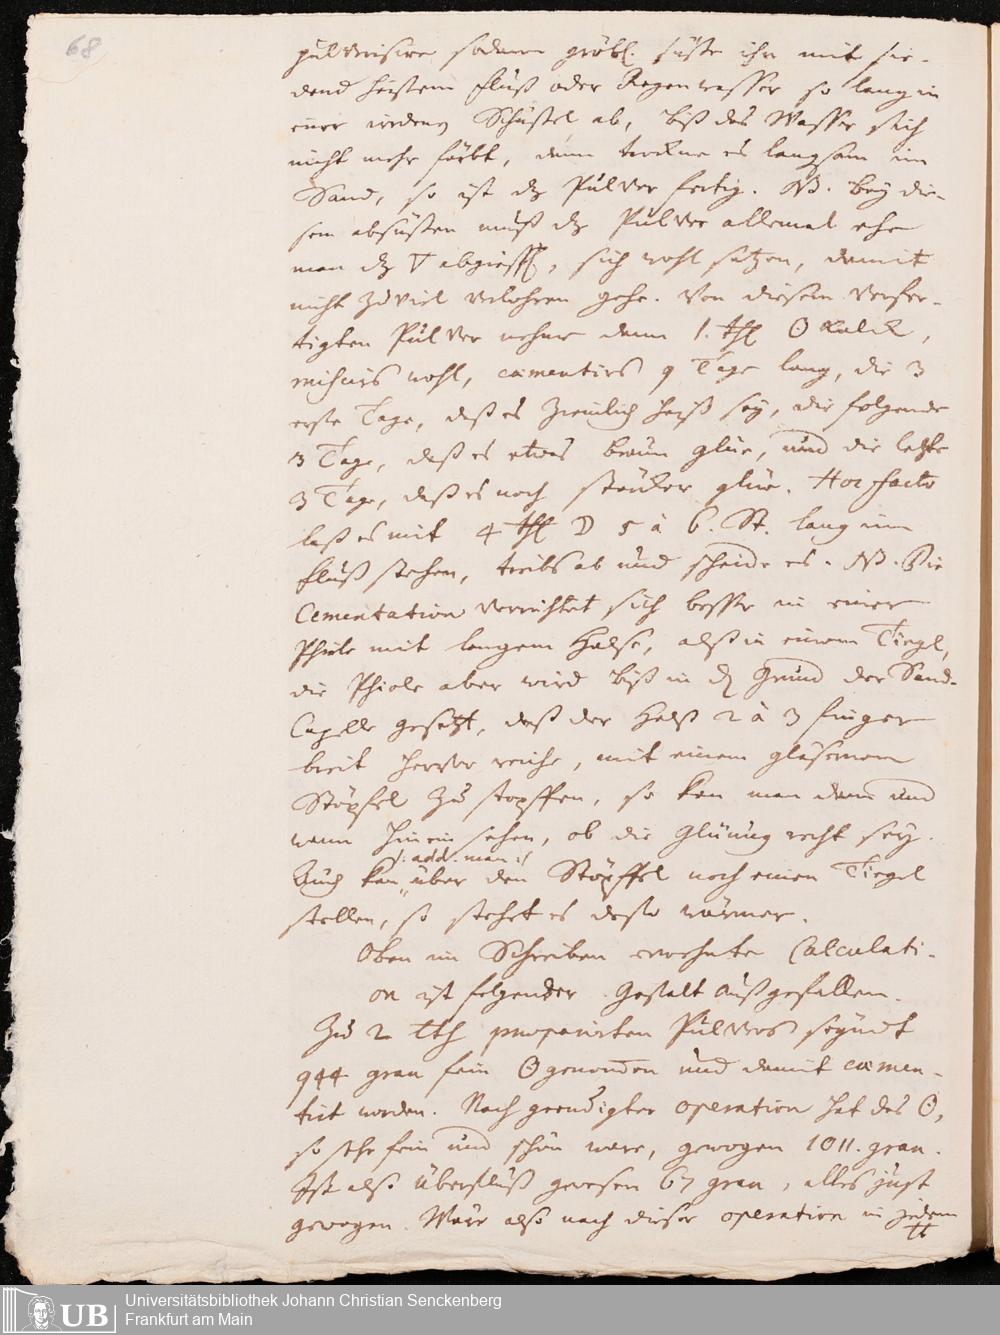 68
pulverisire sodann gröbl. süße ihn mit sie-
dend heißem Fluß oder Regenwasser so lang in
einer irdenen Schüssel ab, biß das Wasser sich
nicht mehr färbt, dann trockne es langsam im
Sand, so ist dz Pulver fertig. NB. bey die-
sem absüßen muß dz Pulver allemal ehe
man dz ▽ abgießt, sich wohl setzen, damit
nicht zu viel verlohren gehe. Von diesem verfer-
tigten Pulver nehme dann 1. thl ☉ Kalck,
mischs wohl, cämentirs 9 Tage lang, die 3
erste Tage, daß es ziemlich heiß sey, die folgende
3 Tage, daß es etwas braun glüe, und die letzte
3 Tage, daß es noch stärcker glüe. Hoc facto
laß es mit 4 thl ☽ 5 à 6. St. lang im
Fluß stehen, treibs ab und scheide es. NB. Die
Cementation verrichtet sich besser in einer
Phiole mit langem Halse, alß in einem Tiegel,
die Phiole aber wird biß in dz Grund der Sand-
Capelle gesetzt, daß der Halß 2 à 3 finger
breit hervor reiche, mit einem gläsernen
Stöpfel zu stopffen, so kan man dann und
wann hinein sehen, ob die Glüung recht sey.
/: add. man :/
Auch kan über den Stöpffel noch einen Tiegel
stellen, so stehet es desto wärmer.
Oben im Schreiben erwehnte Calculati-
on ist folgender Gestalt außgefallen.
Zu 2 lth praeparirten Pulvers seynd
944 gran fein ☉ genom̄en und damit cämen-
tirt worden. Nach geendigter operation hat das ☉,
so sehr fein und schön ware, gewogen 1011. gran.
Ist also Überfluß gewesen 67 gran, alles just
gewogen. Wäre also nach dieser operation in jedem
℔
UB
Universitätsbibliothek Johann Christian Senckenberg
Frankfurt am Main